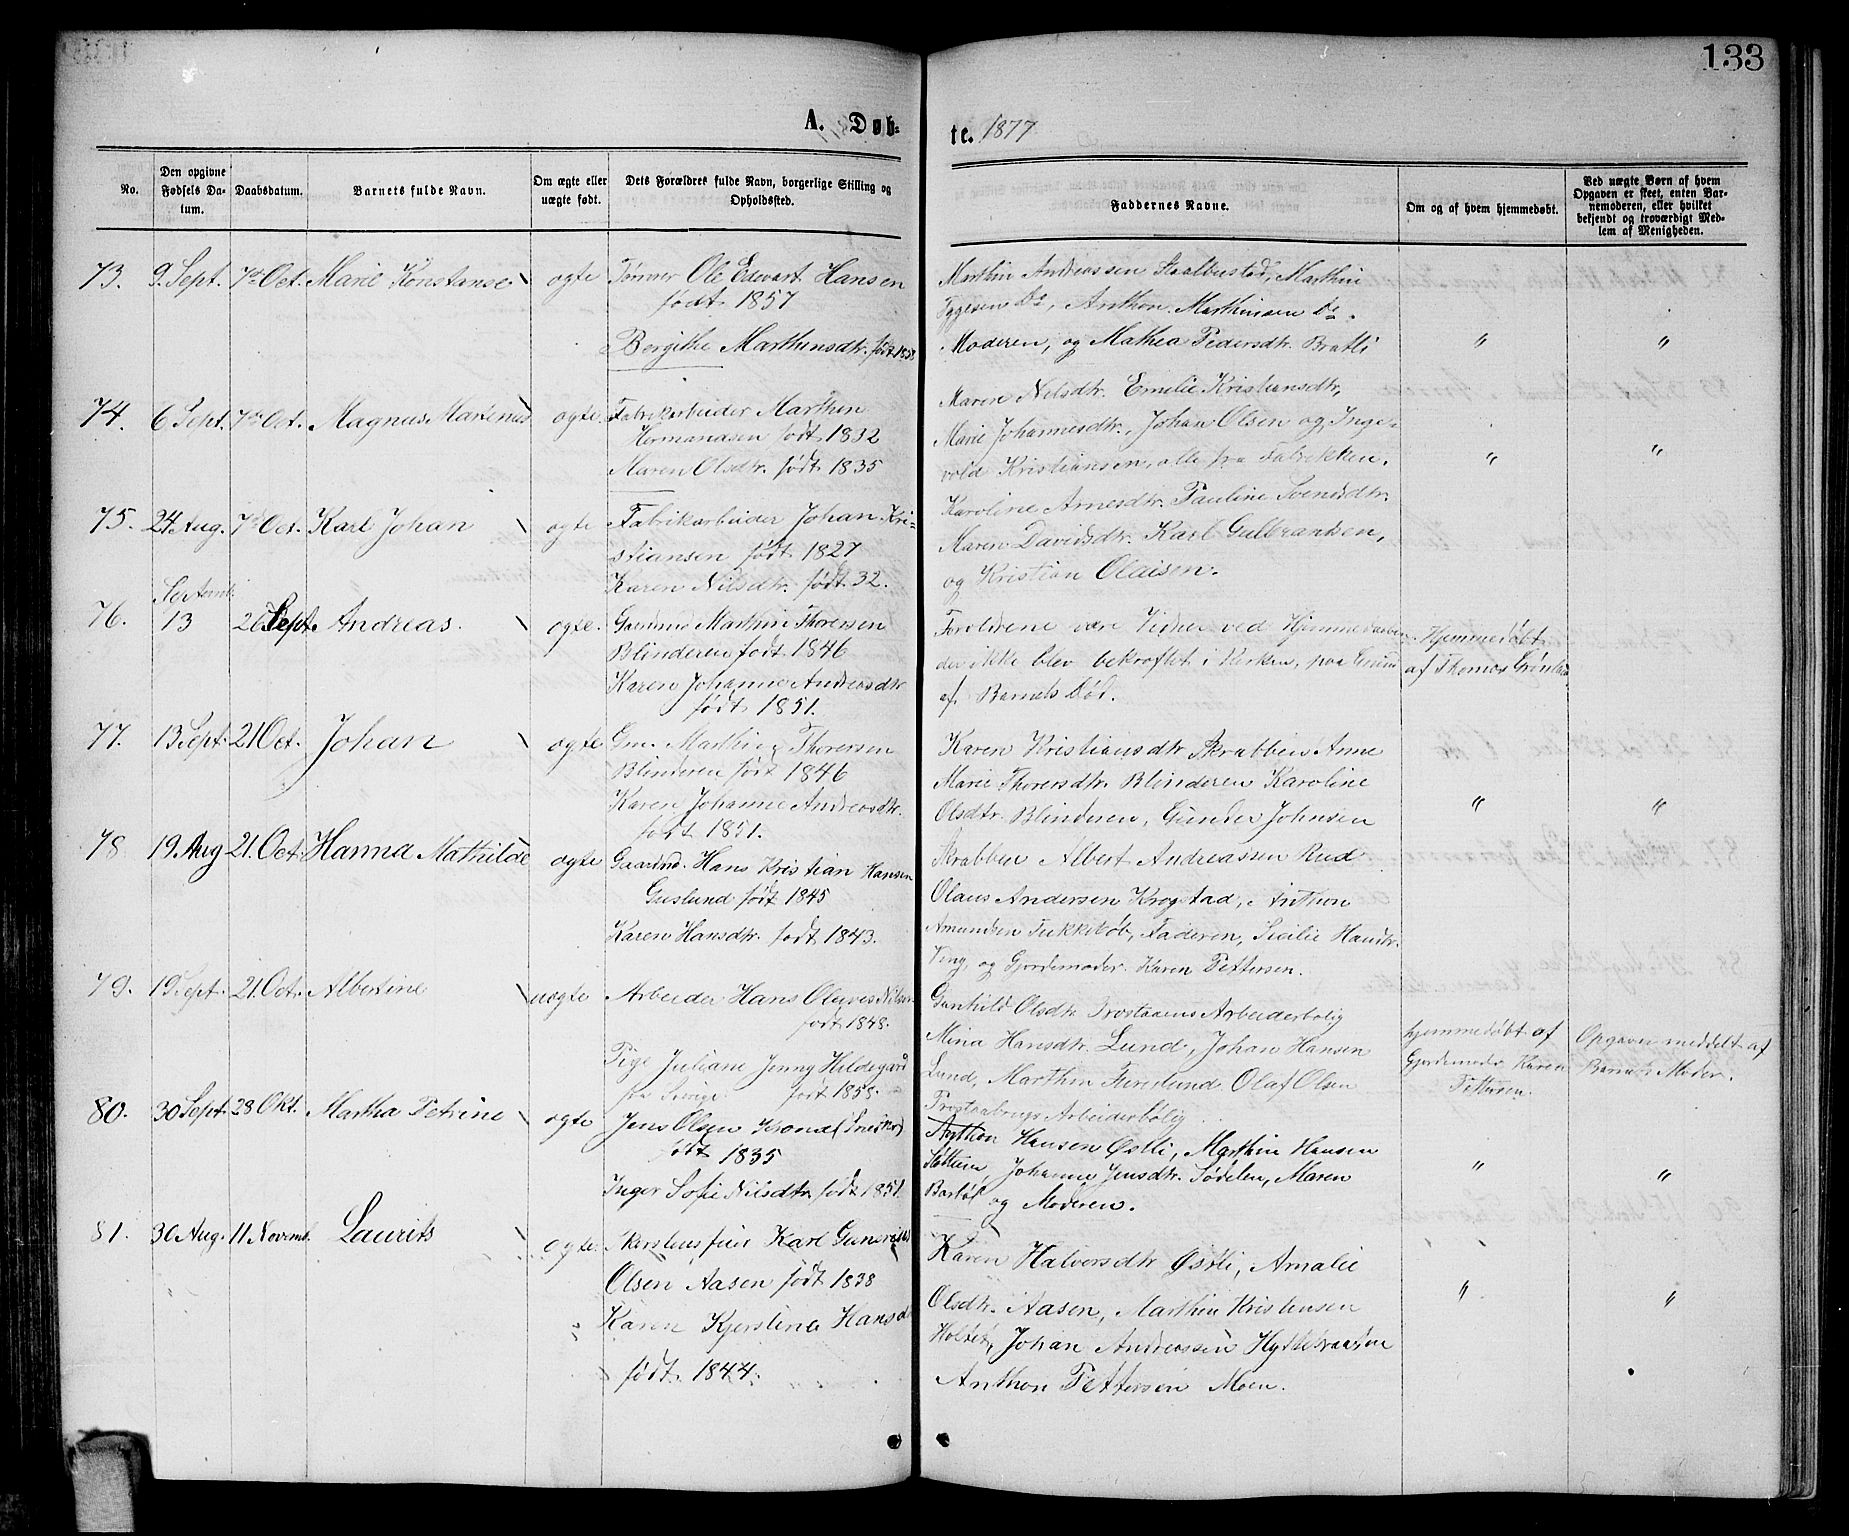 133
A. Døb-
te. 1877
No.
Den opgivne Fødsels Da-tum.
Daabsdatum.
Barnets fulde Navn.
Om ægte eller uægte født.
Dets Forældres fulde Navn, borgerlige Stilling og Opholdssted.
Faddernes Navne.
Om og af hvem hjemmedøbt.
Ved uægte Børn af hvem Opgaven er skeet, enten Bar-nemoderen, eller hvilket bekjendt og troværdigt Med-lem af Menigheden.
73. 9. Sept. 7de Oct. Marie Konstanse ogte
Tønner Ole Edevart Hansen
født 1857
Bergithe Marthinsdtr. født 1858
Marthin Andreassen Staalbustad, Marthin
Tygesen Do, Anthon Marthinsen Do.
Moderen, og Mathea Pedersdtr. Bratli " "
74. 6 Sept. 7de Oct. Magnus Martenius ogte.
Fabrikarbeider Marthin
Hermanasen født 1832
Maren Olsdtr. født 1835
Maren Nilsdtr. Emilie Kristiansdtr,
Marie Johannesdtr, Johan Olsen og Inge-
vold Kristiansen, alle fra Fabrikken. " "
75. 24 Aug. 7de Oct. Karl Johan ogte
Fabrikarbeider Johan Kri-
stiansen født 1827
Karen Nilsdtr. født 32.
Karoline Arnesdtr. Pauline Svensdtr.
Maren Davidsdtr. Karl Gulbransen,
og Kristian Olaisen.
76. Septemb. 13 26 Sept. Andreas. ogte.
Gaardmd Marthin Thoresen
Blinderen født 1846
Karen Johanne Andersdtr
født 1851.
Forældrene vare Vidner ved Hjemmedaaben
der ikke blev bekræftet i Kirken, paa Grund
af Barnets Død.
Hjemmedøbt
af Thomas Grønlund
77. 13 Sept. 21 Oct. Johan ogte
Gm. Marthin Thoresen
Blinderen født 1846
Karen Johanne Andersdtr.
født 1851.
Karen Kristiansdtr Skrabben Anne
Marie Thoresdtr. Blinderen Karoline
Olsdtr. Blinderen, Gunder Johnsen
Skrabben Albert Andreassen Rud " "
78. 19 Aug 21. Oct Hanna Mathilde ogte
Gaardmd. Hans Kristian Hansen
Guslund født 1845
Karen Hansdtr. født 1843.
Olaus Andersen Krogstad, Anthon
Amundsen Tukkebøb, Faderen, Sicilie Hansdtr.
Ving, og Gjordemoder Karen Pettersen.
79. 19 Sept. 21. Oct. Albertine uogte
Arbeider Hans Oluves Nilsen
født 1848.
Pige Juliane Jenny Hildegard
fra Sverige. født 1858.
Gunhild Olsdtr. Frostaaens Arbeiderbolig
Mina Hansdtr. Lund, Johan Hansen
Lund, Marthin Fureslund Olaf Olsen
Frostaabrugs Arbeiderbolig
hjemmedøbt af
Gjordemoder Karen
Pettersen.
Opgaven meddelt af
Barnets Moder.
80. 30 Sept. 28 Okt. Martha Petrine ogte
Jens Olsen
født 1835
Inger Sofie Nilsdtr. født 1851.
Anthon Hansen Østli, Marthin Hansen
Johanne Jensdtr. Sødelen, Maren
og Moderen. " "
81. 30 Aug. 11 Novemb. Laurits ogte.
Karl
Olsen Aasen født 1838
Karen Kjerstine Hansd
født 1844.
Karen Halversdtr Østli, Amalie
Olsdtr. Aasen, Marthin Kristensen
Holtet, Johan Andreassen
Anthon Pettersen Moen. " "